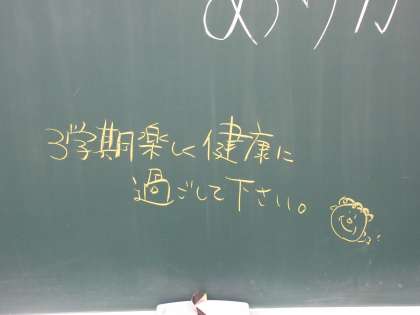 3学期楽しく健康に
過ごして下さい。